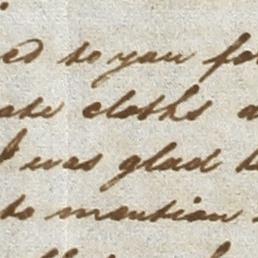 ed to you for
ate cloths a
I was glad t
to mention